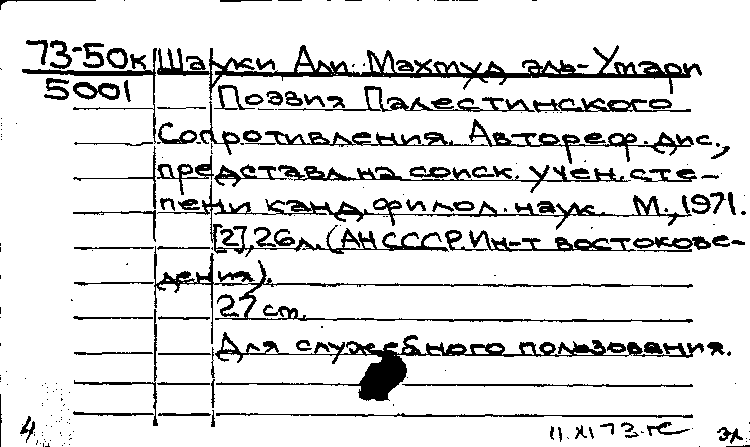 73-50к Шауки Али Махмуд эль-Умари
5001 Поэзия Палестинского
Сопротивления. Автореф. дис.,
представл. на соиск. учен. сте-
пени канд. филол. наук. М., 1971.
[2], 26 л. (АН СССР. Ин-т востокове-
дения).
27 см.
Для служебного пользования.
4 11.XI 73.
эл